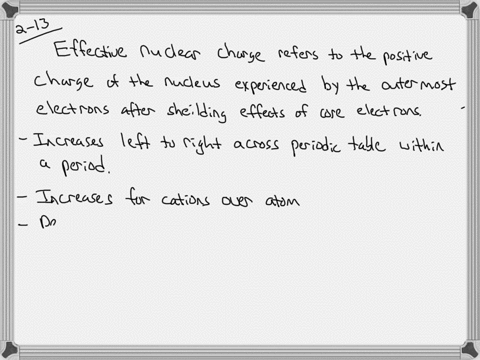 2-13
Effective nuclear charge refers to the positive
charge of the nucleus experienced by the outermost
electrons after sheilding effects of core electrons.
- Increases left to right across periodic table within
a period.
- Increases for cations over atom
-